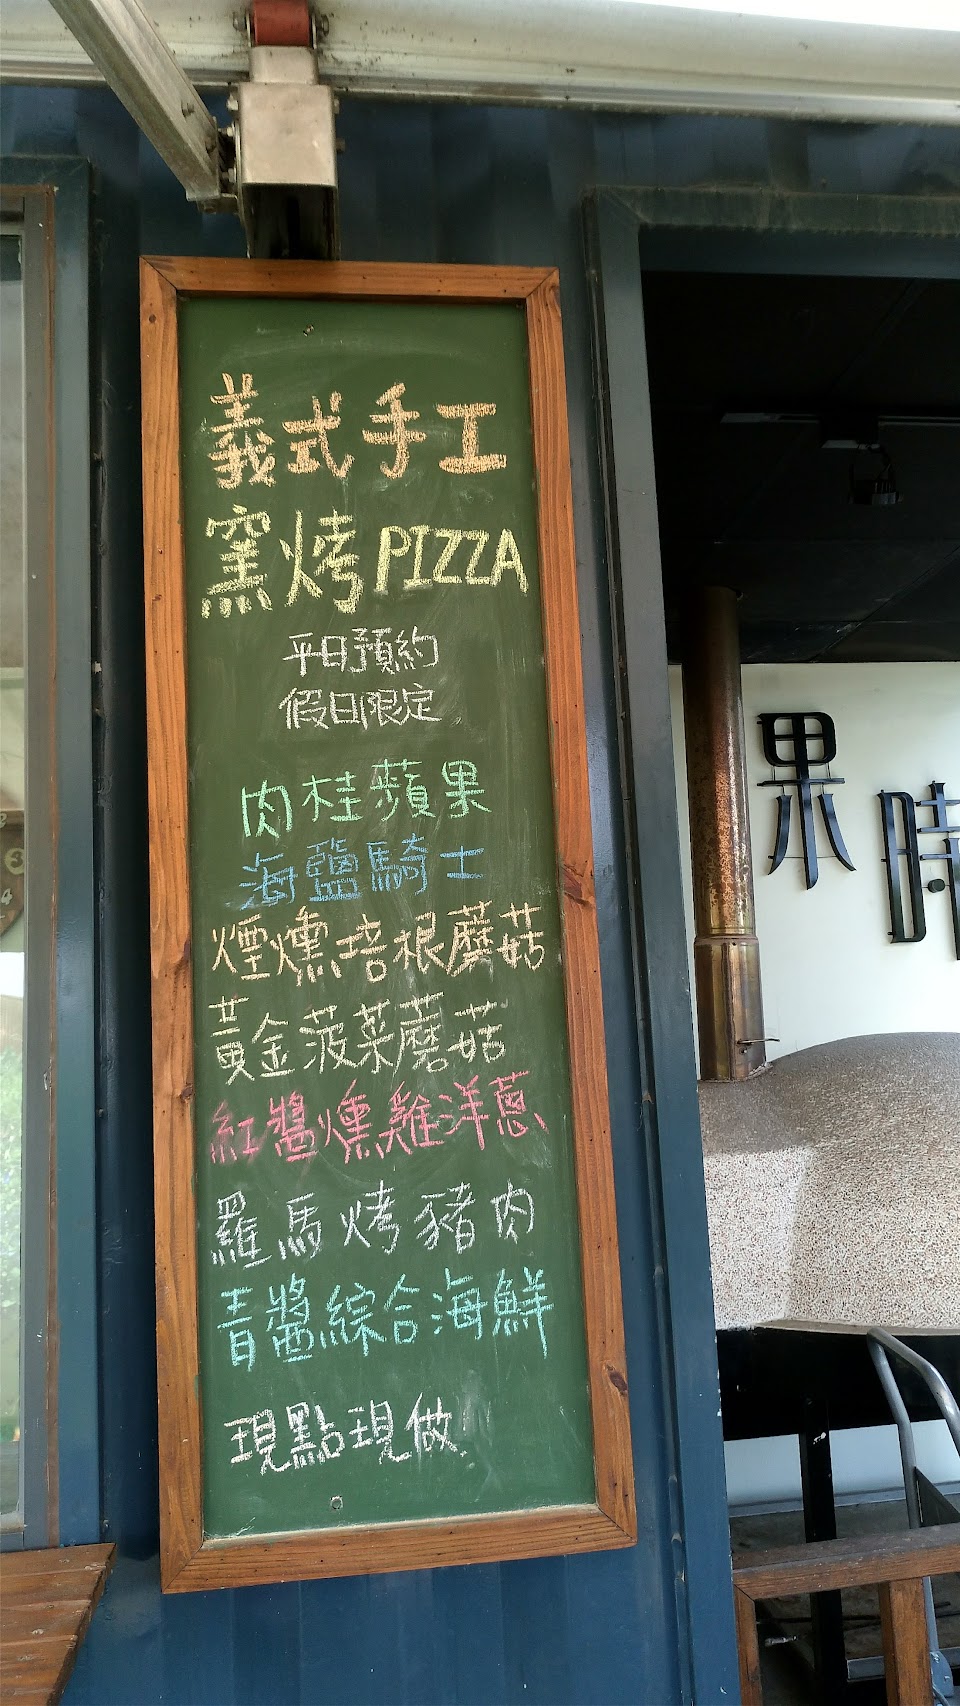 義式手工
窯烤PIZZA
平日預約
假日限定
肉桂蘋果
海鹽騎士
煙燻培根蘑菇
黃金菠菜蘑菇
紅醬燻雞洋蔥
羅馬烤豬肉
青醬綜合海鮮
現點現做
果時
3
4